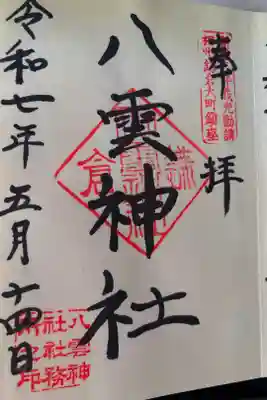 奉拝
大町鎮座
八雲神社
鎌倉
令和七年五月十四日
八雲神
社社務
所之印